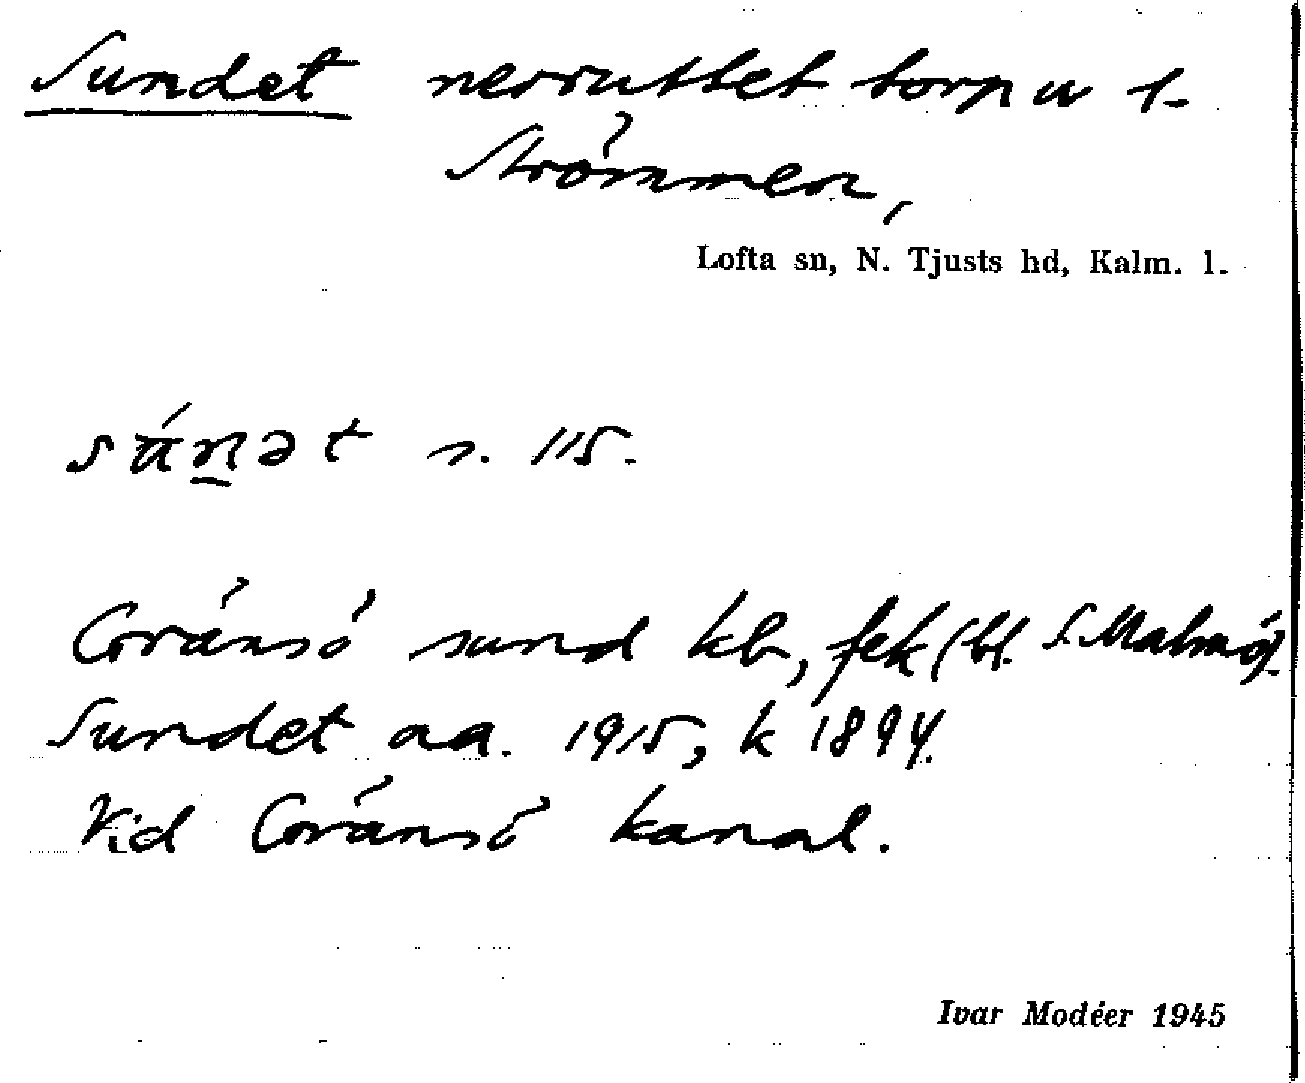 Sundet nerruttet torp u l-
Strömmen,
Lofta sn, N. Tjusts hd, Kalm. l.
sún̲ət s. 115.
Gränsö sund kb, fek (bl. S. Malmö).
Sundet aa. 1915, k 1894.
Vid Gränsö kanal.
Ivar Modéer 1945